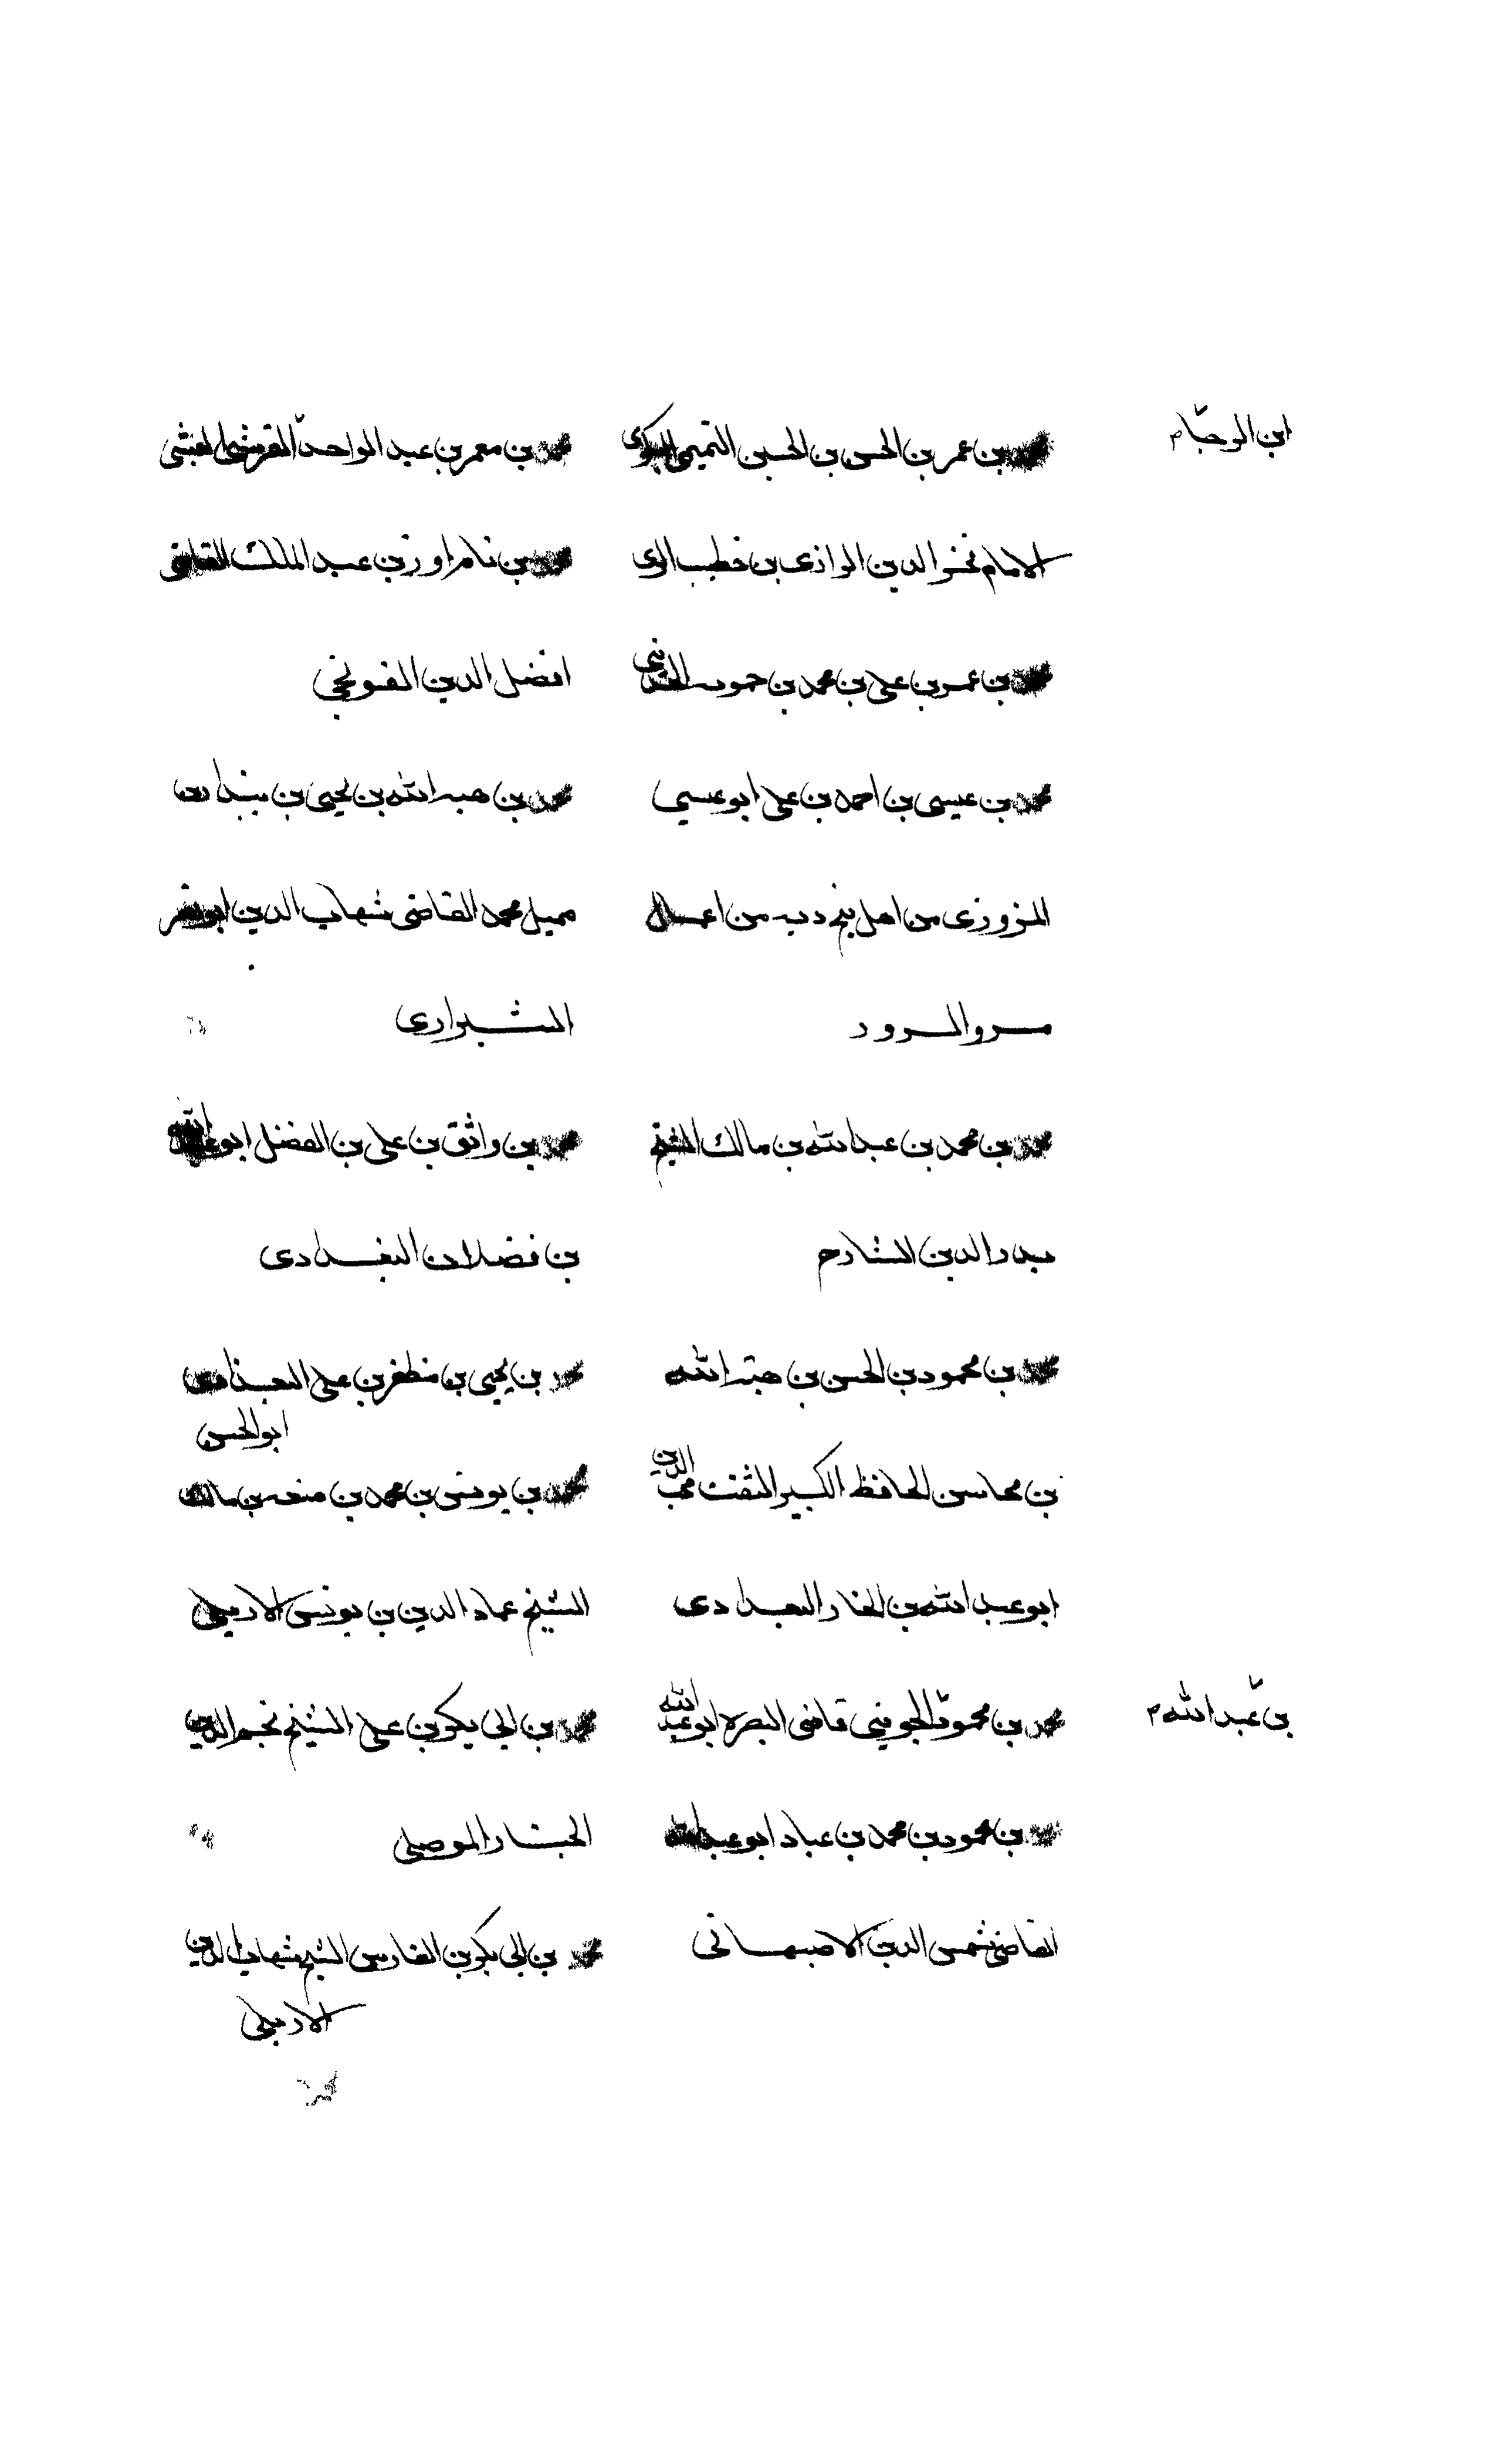 ابن الوجيه م
محمد بن عمر بن الحسن بن الحسين التميمي البكرى
الامام فخر الدين الرازى بن خطيب الرى
محمد بن عمر بن على بن محمد بن حمويه الجوينى
محمد بن عيسى بن احمد بن على ابو عيسى
المروزى من اهل بنج ديه من اعمال
مرو الرود
محمد بن محمد بن عبد الله بن مالك الشيخ
بدر الدين الشارح
محمد بن محمود بن الحسن بن هبة الله
بن محاسن الحافظ الكبير الثقة محب الدين
ابو عبد الله بن النجار البغدادى
محمد بن محمود الجوينى قاضى البصره ابو عبد الله
بن عبد الله م
محمد بن محمود بن محمد بن عباد ابو عبد الله
القاضى شمس الدين الاصبهانى
محمد بن معمر بن عبد الواحد القرشى العبشمى
محمد بن نامراور بن عبد الملك القاضى
افضل الدين الخونجى
محمد بن هبة الله بن يحيى بن بندار بن
مميل محمد القاضى شهاب الدين ابو نصر
الشيرازى
محمد بن واثق بن على بن الفضل ابو عبد الله
بن فضلان البغدادى
محمد بن يحيى بن مظفر بن على البغدادى
ابو الحسن
محمد بن يونس بن محمد بن منعه بن مالك
الشيخ عماد الدين بن يونس الاربلى
محمد بن ابى بكر بن على الشيخ نجم الدين
الموصلى
محمد بن ابى بكر بن الفارسى الشيخ شهاب الدين